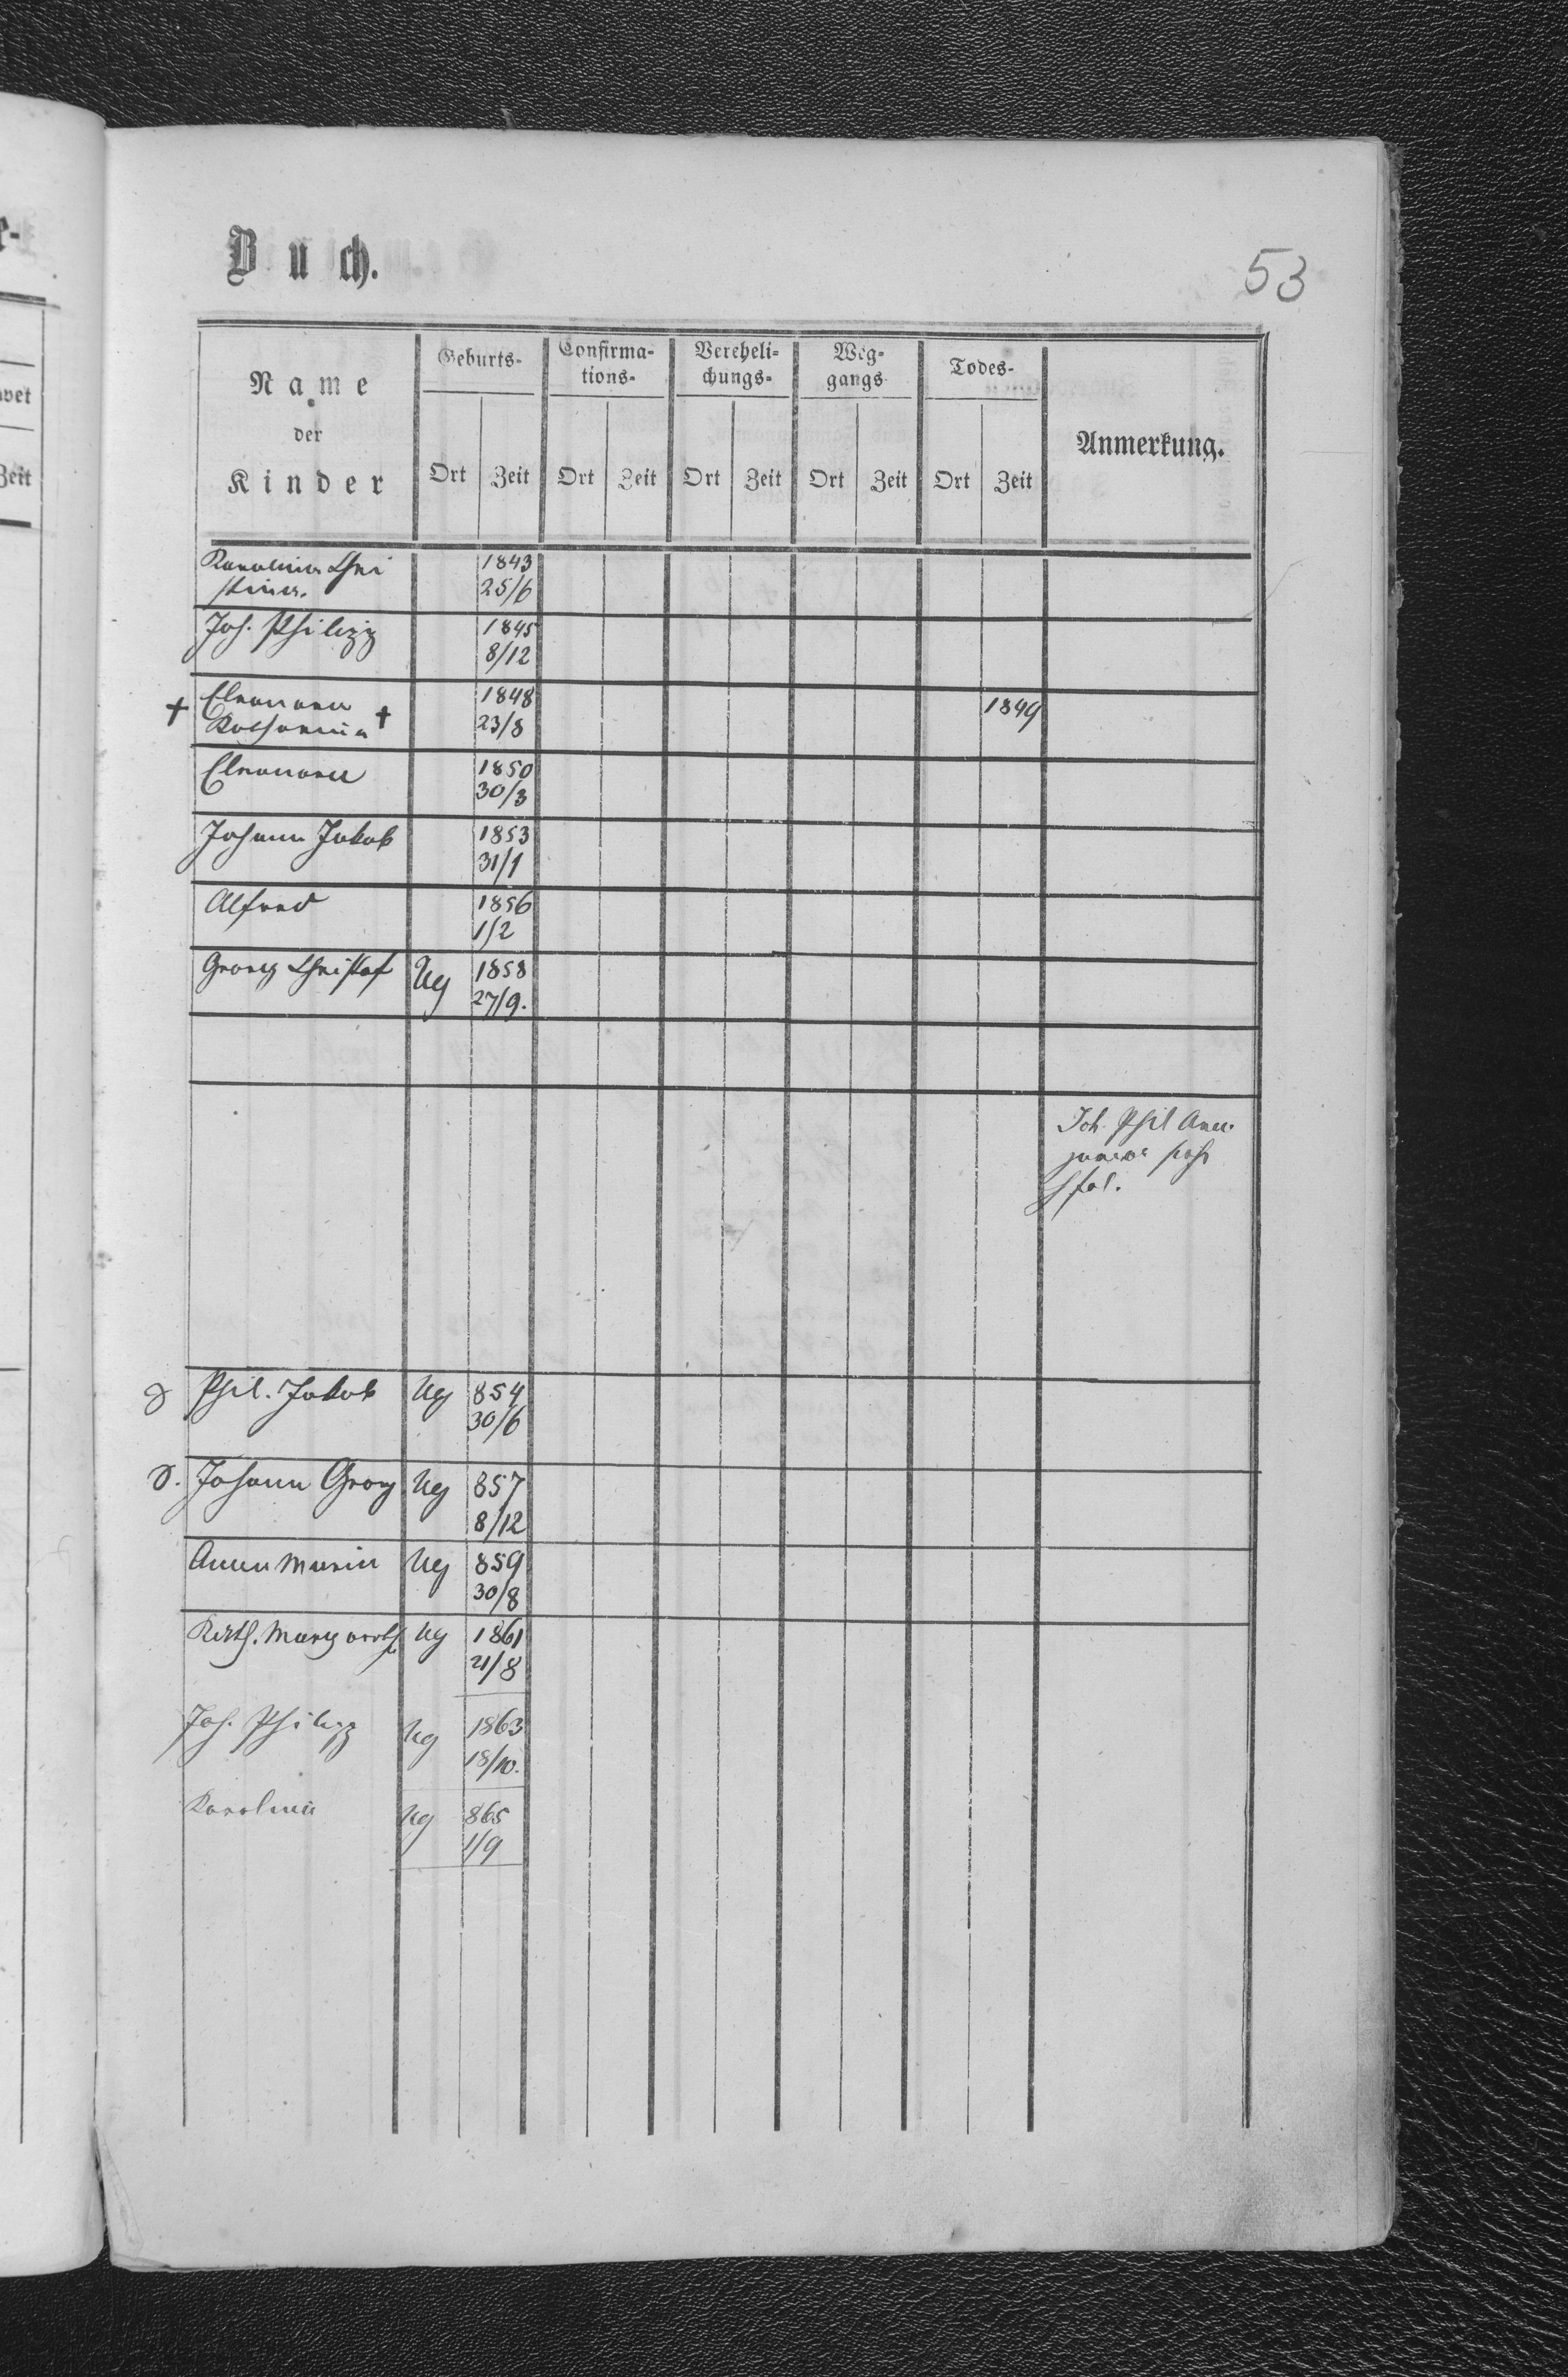 Buch.
53
Name der Kinder
Geburts-
Confirma-
tions-
Vereheli-
chungs-
Weg-
gangs
Todes-
Anmerkung.
Ort Zeit Ort Zeit Ort Zeit Ort Zeit Ort Zeit
Karolina Chri 1843
stina. 25/6
Joh. Philipp 1845
8/12
† Eleonora 1848 1849
Katharina † 23/8
Eleonora 1850
30/3
Johann Jakob 1853
31/1
Alfred 1856
1/2
Georg Christof Ug 1858
27/9.
Joh. Phil
junior
Phil. Jakob Ug 854
30/6
Johann Georg Ug 857
8/12
Anna Maria Ug 859
30/8
Kath. Margareth Ug 1861
21/8
Joh. Philipp Ug 1863
18/10.
Karolina Ug 865
1/9
et
Zeit